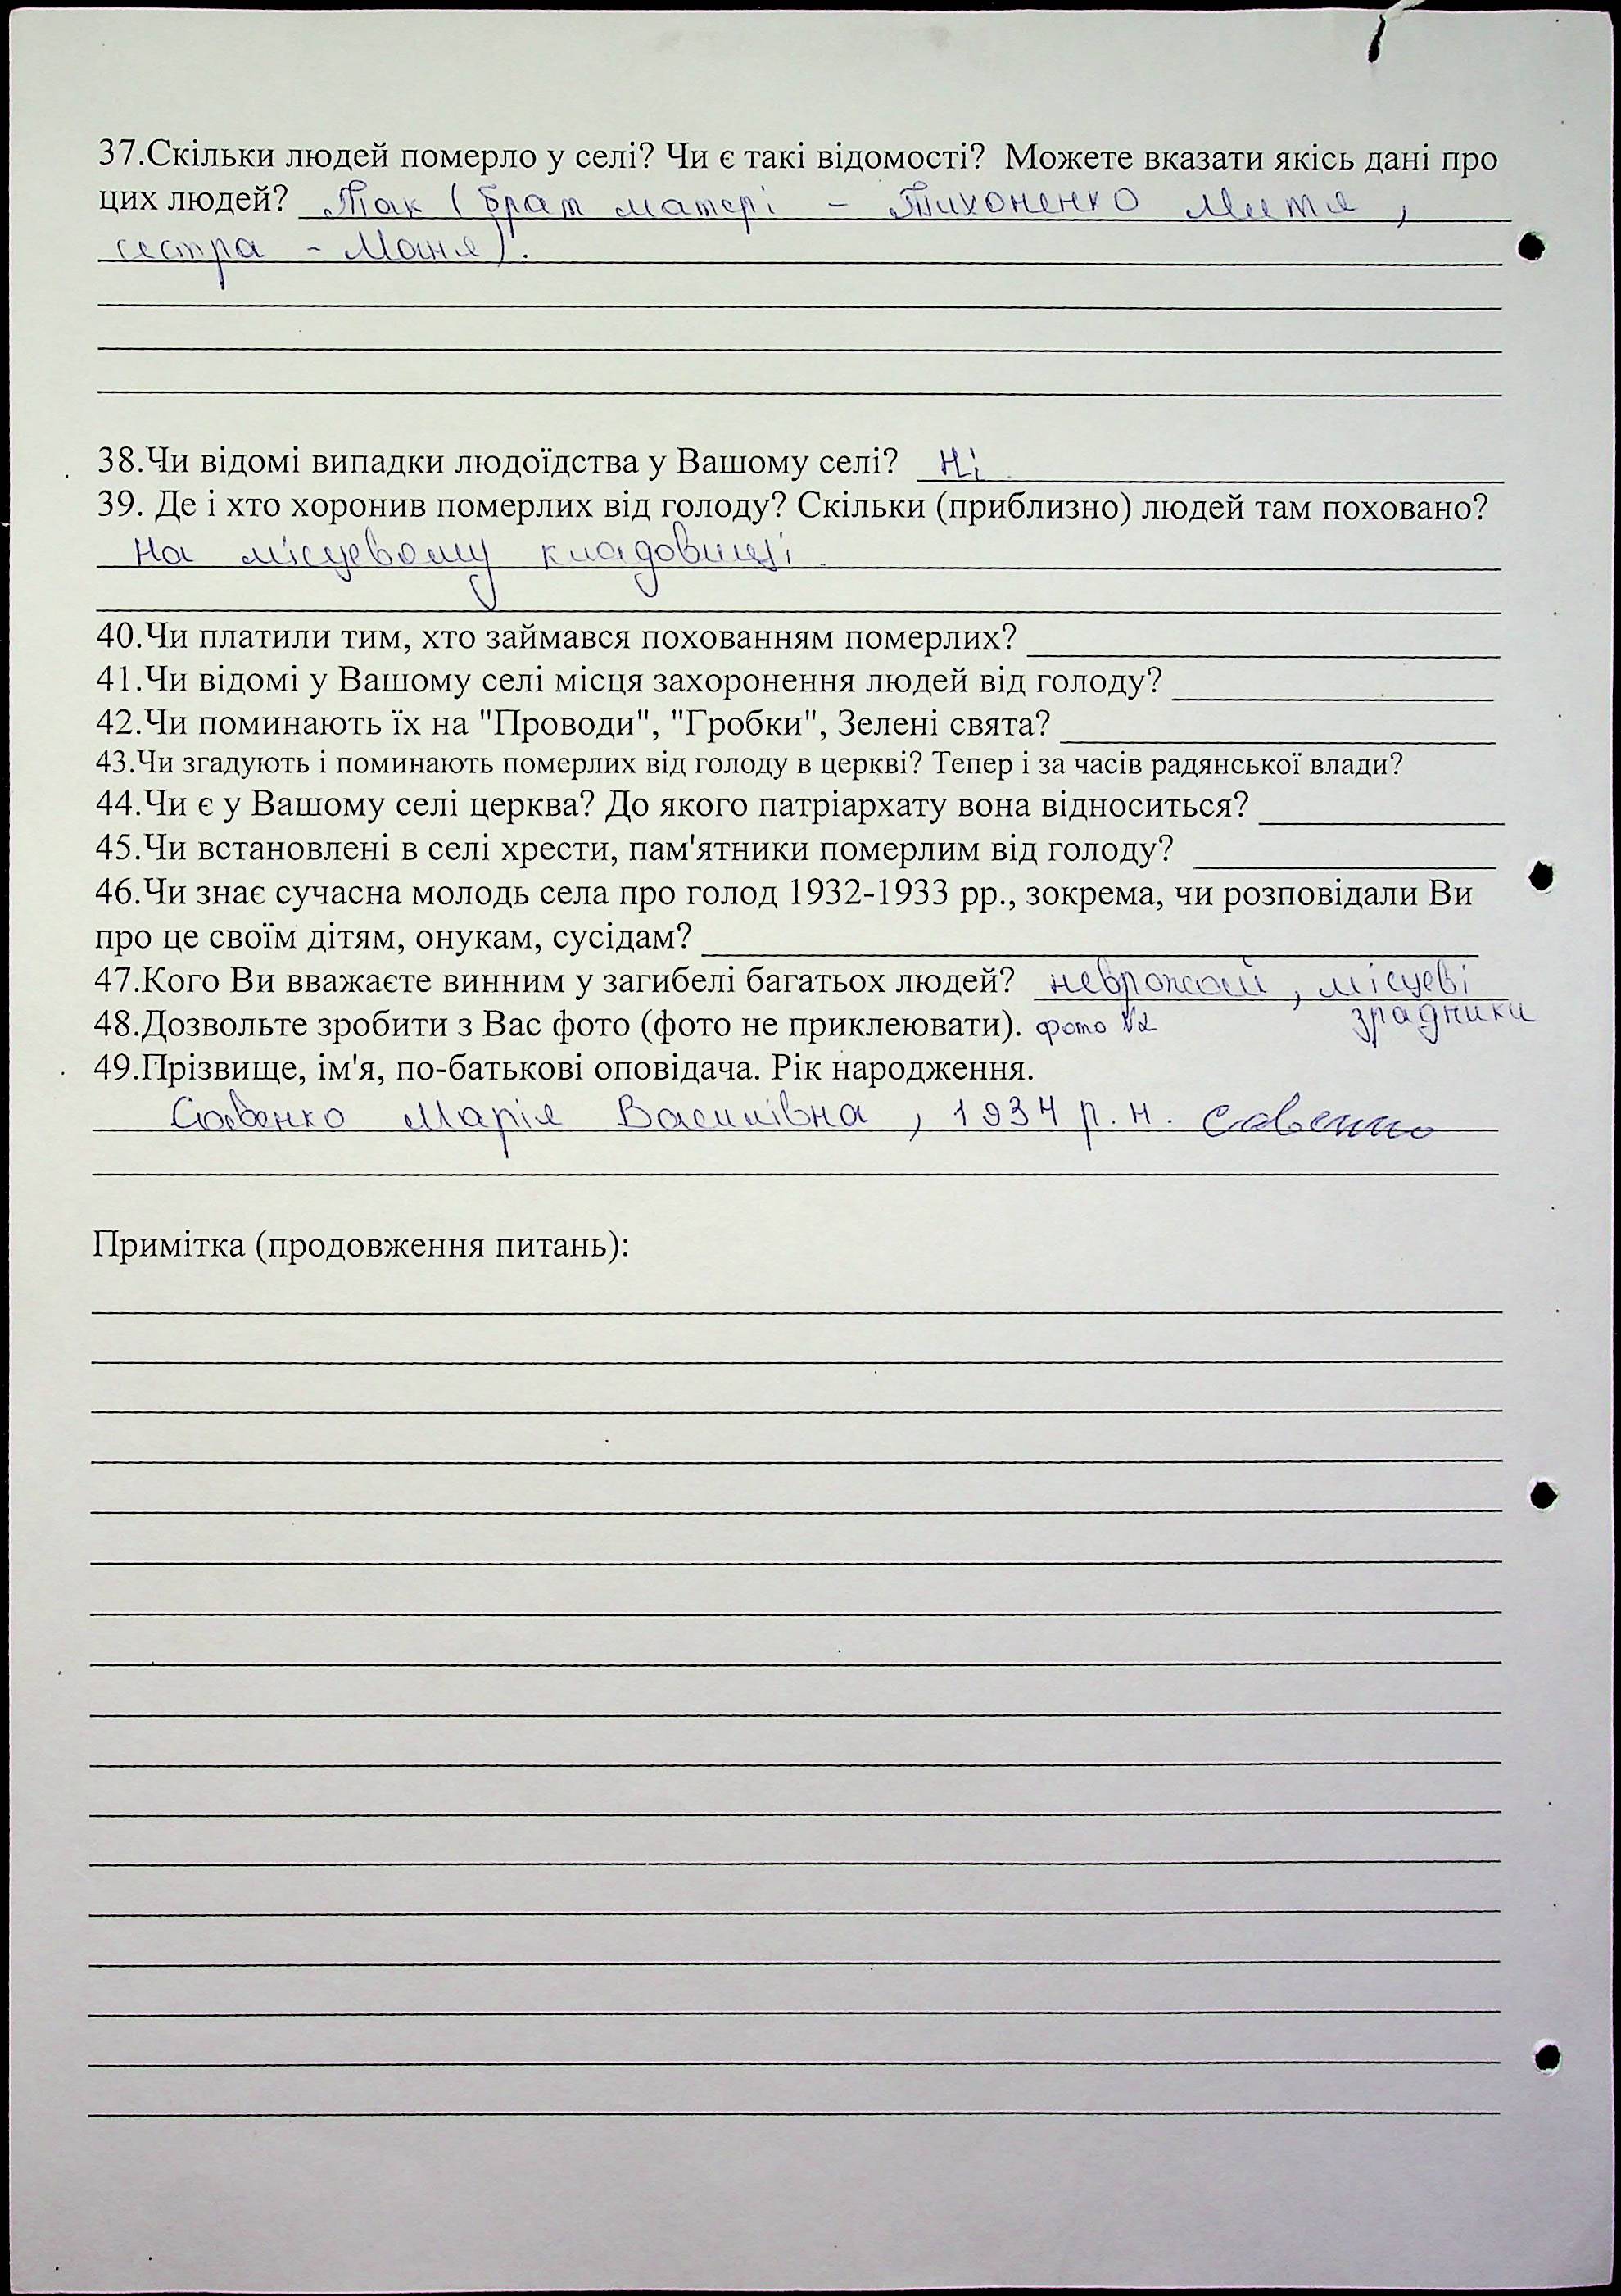 37.Скільки людей померло у селі? Чи є такі відомості? Можете вказати якісь дані про
цих людей? Так (брат матері - Тихоненко Митя,
сестра - Маня).
38.Чи відомі випадки людоїдства у Вашому селі? Ні
39. Де і хто хоронив померлих від голоду? Скільки (приблизно) людей там поховано?
На місцевому кладовищі.
40.Чи платили тим, хто займався похованням померлих?
41.Чи відомі у Вашому селі місця захоронення людей від голоду?
42.Чи поминають їх на "Проводи", "Гробки", Зелені свята?
43.Чи згадують і поминають померлих від голоду в церкві? Тепер і за часів радянської влади?
44.Чи є у Вашому селі церква? До якого патріархату вона відноситься?
45.Чи встановлені в селі хрести, пам'ятники померлим від голоду?
46.Чи знає сучасна молодь села про голод 1932-1933 рр., зокрема, чи розповідали Ви
про це своїм дітям, онукам, сусідам?
47.Кого Ви вважаєте винним у загибелі багатьох людей? неврожай, місцеві
зрадники
48.Дозвольте зробити з Вас фото (фото не приклеювати). фото
49.Прізвище, ім'я, по-батькові оповідача. Рік народження.
Савенко Марія Василівна, 1934 р.н. Савенко
Примітка (продовження питань):